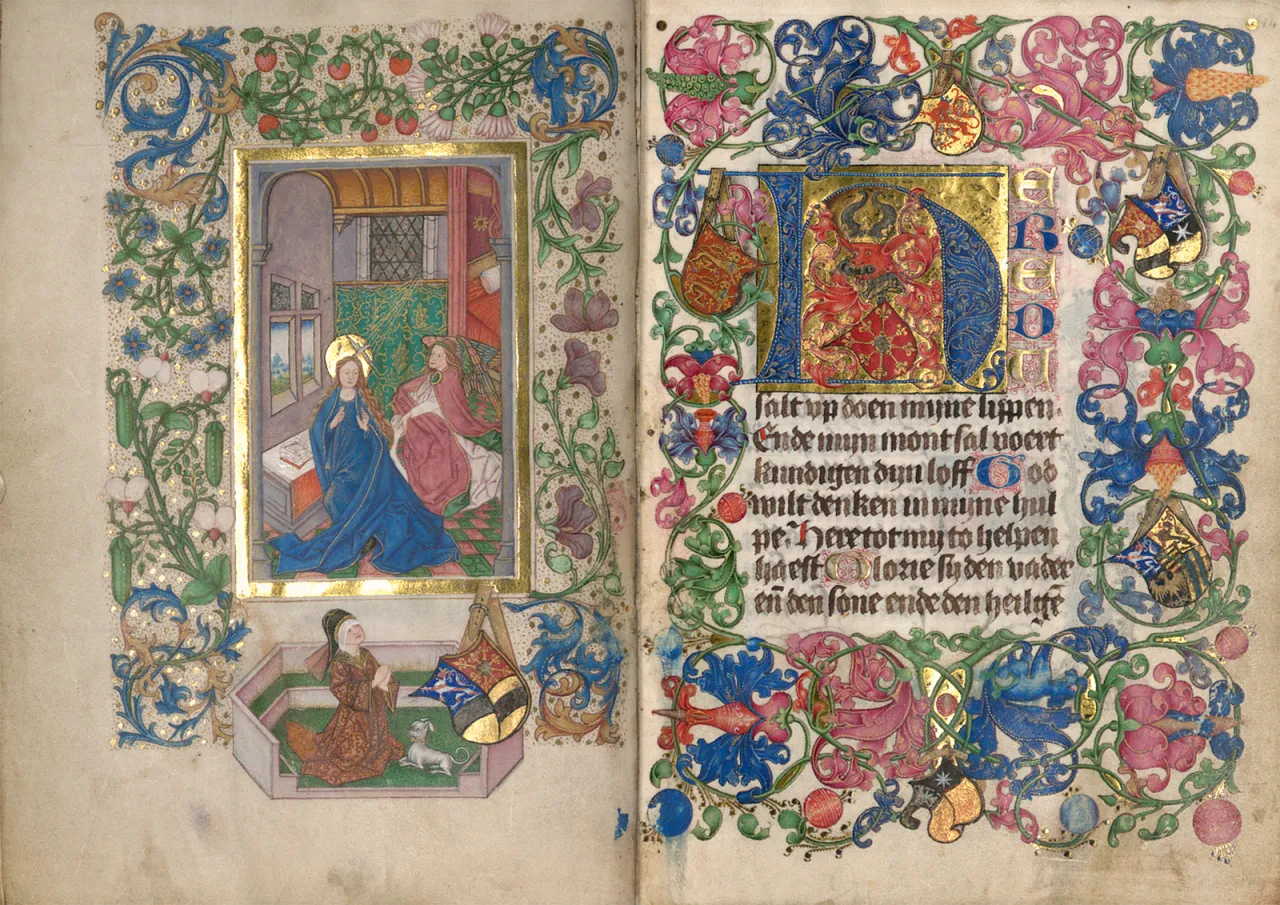 H E
R
E
D
U
salt vp doen myne lippen.
Ende myn mont sal voert
kundigen dyn loff God
wilt denken in myne hul
pe. Here tot my to helpen
haest Glorie sy den vader
en̄ den sone ende den heilige̅